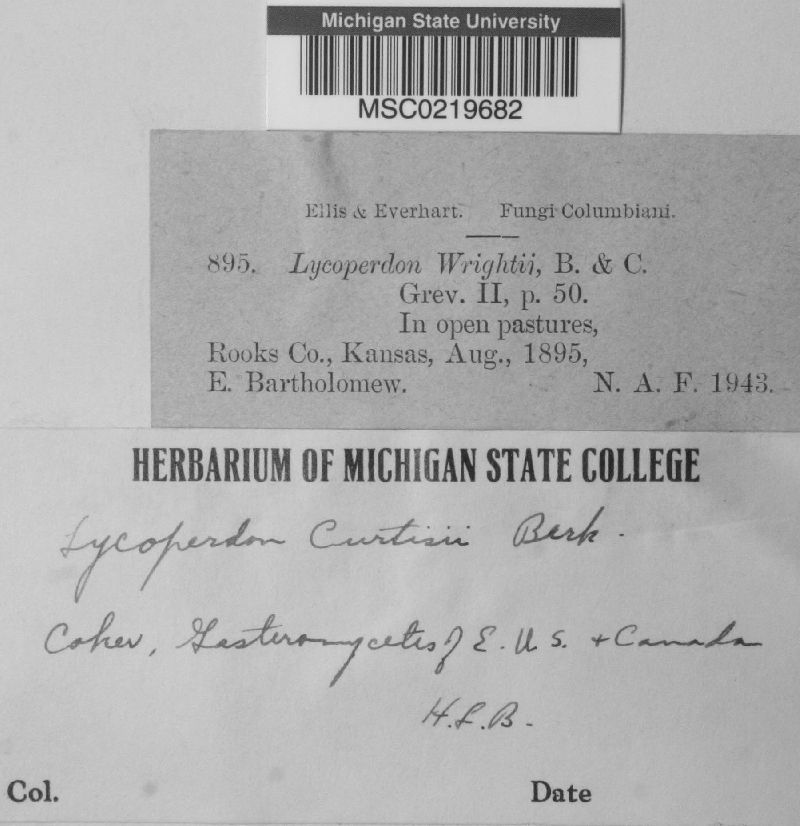 Michigan State University
MSC0219682
Ellis & Everhart. Fungi Columbiani.
895. Lycoperdon Wrightii, B. & C.
Grev. II, p. 50.
In open pastures,
Rooks Co., Kansas, Aug., 1895,
E. Bartholomew. N. A. F. 1943.
HERBARIUM OF MICHIGAN STATE COLLEGE
Lycoperdon Curtisii Berk.
Coker, Gasteromycetes of E. U S. + Canada
H.L.B.
Col. Date